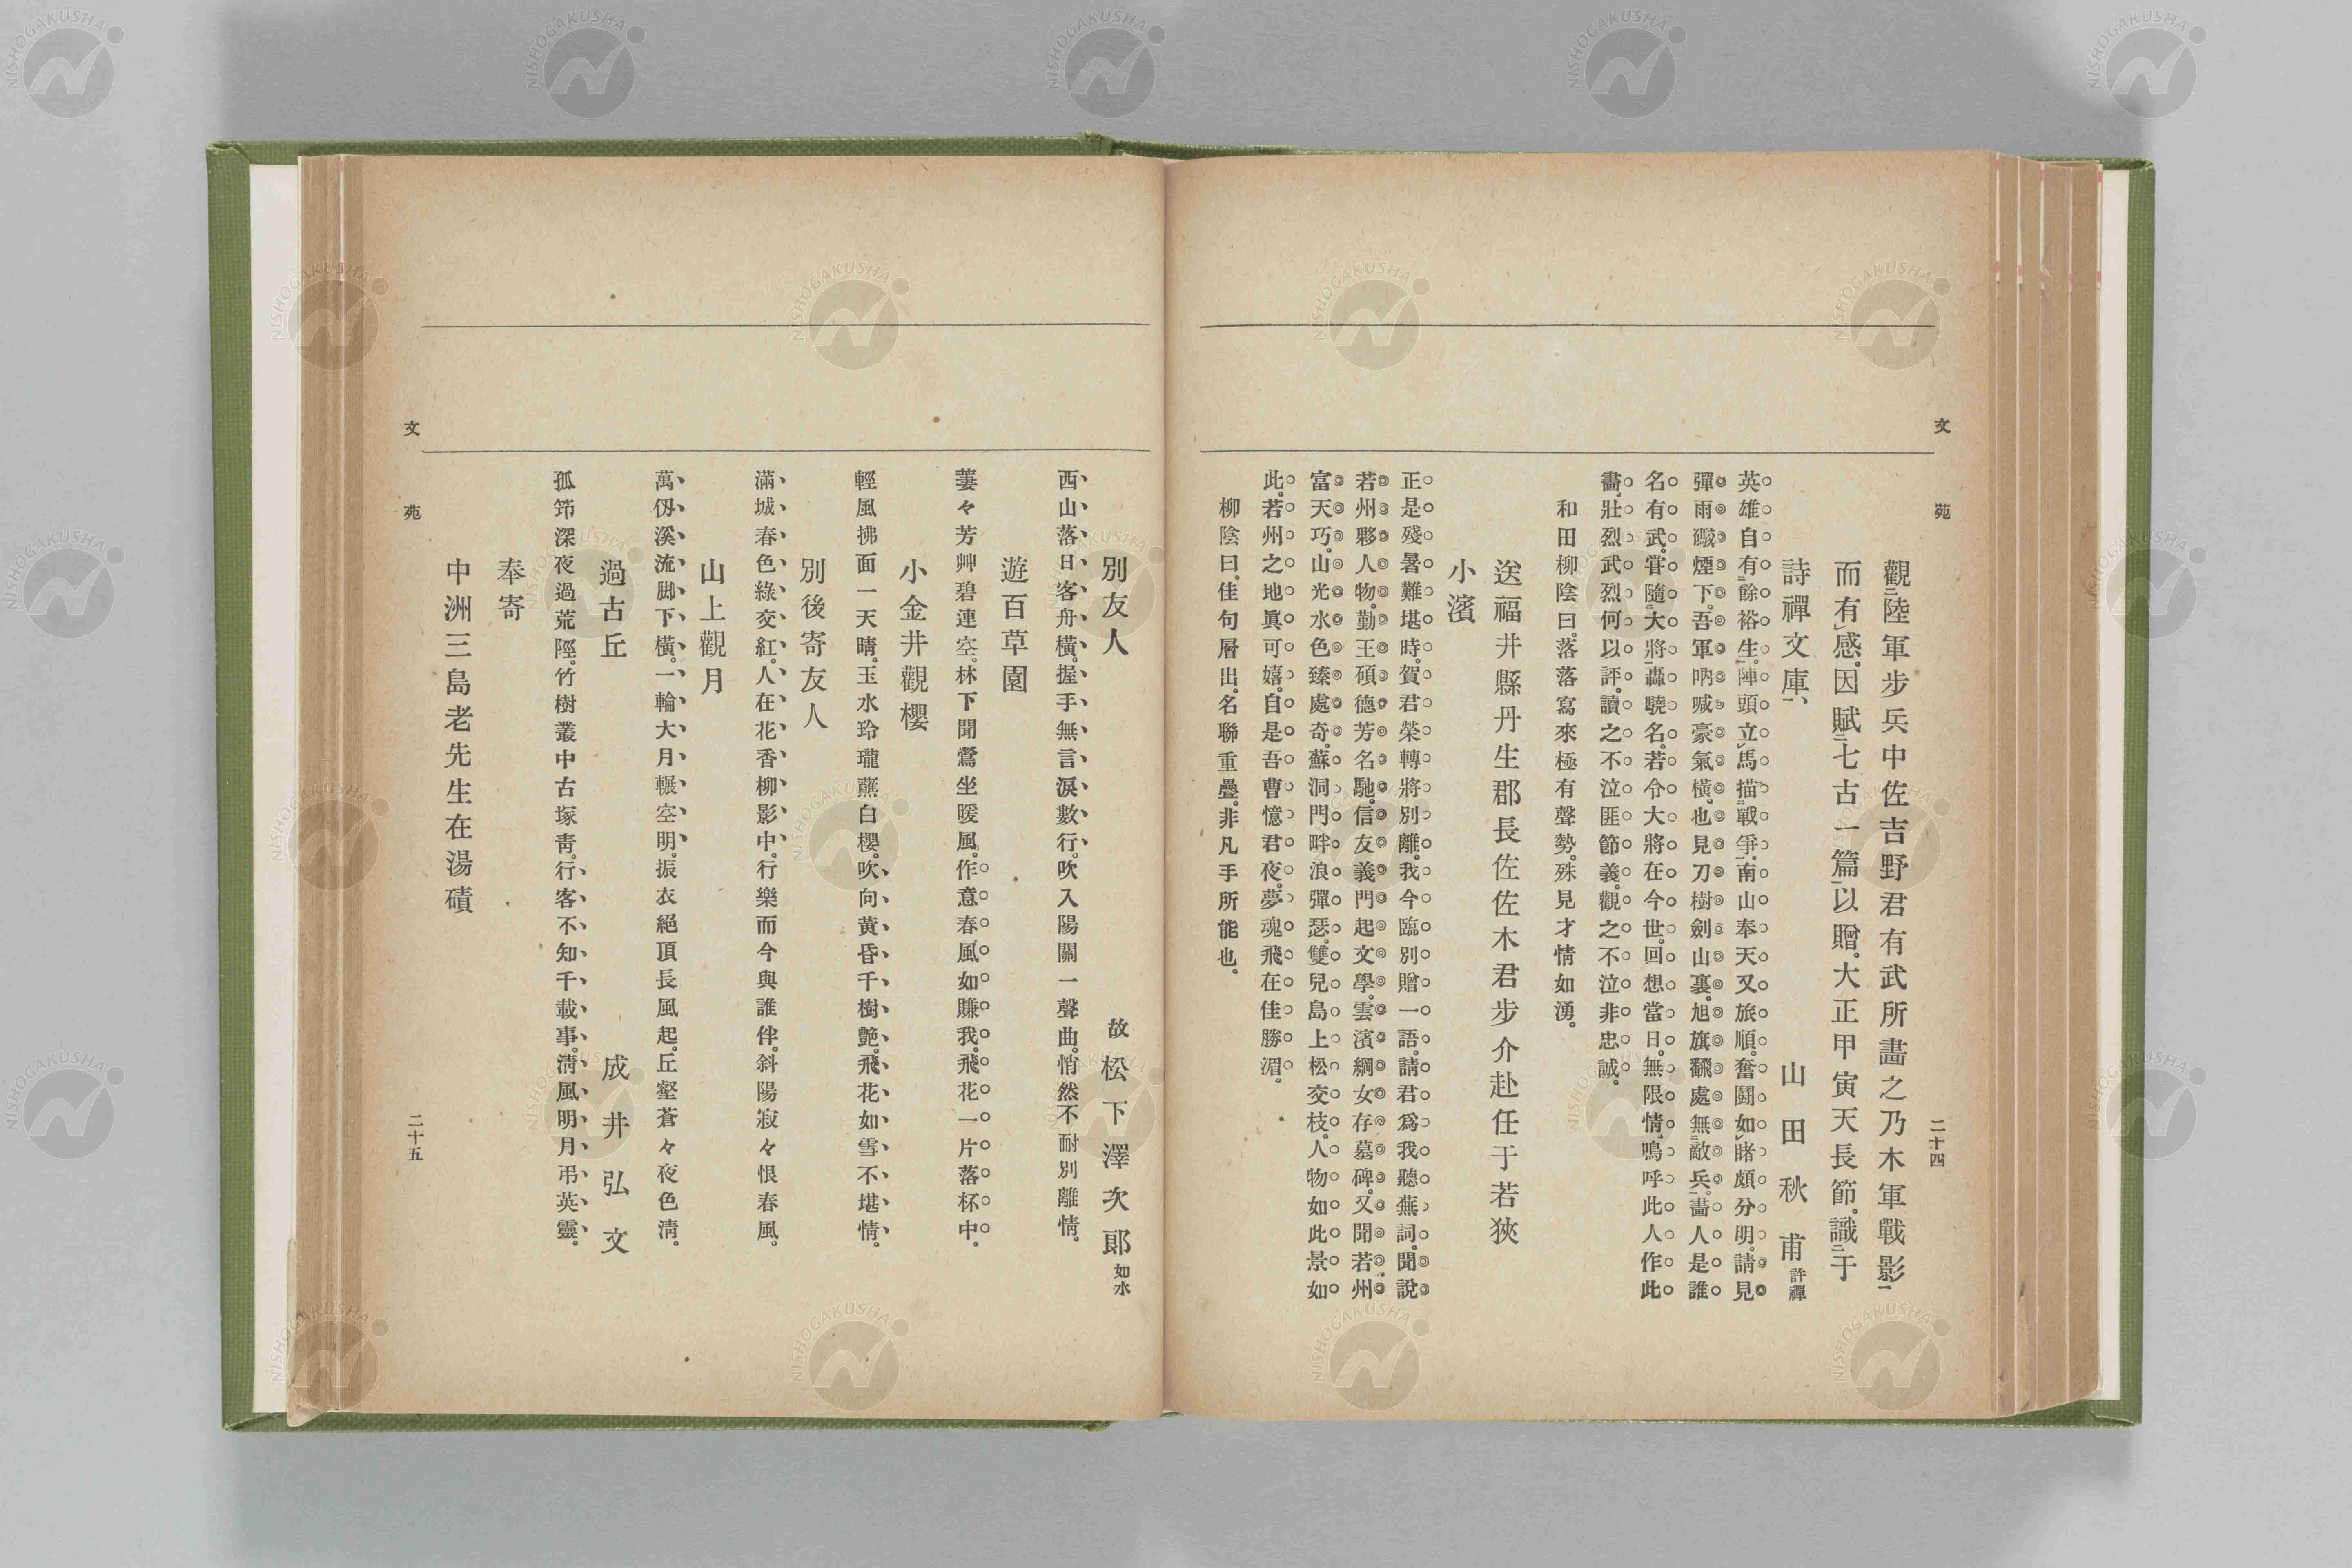 文苑
二十四
觀二陸軍步兵中佐吉野君有武所畵之乃木軍戰影一
而有レ感。因賦二七古一篇一以贈。大正甲寅天長節。識二于
詩禪文庫一、
山田秋甫 許禪
英雄自有二餘裕生一。陣頭立レ馬描二戰爭一。南山奉天又旅順。奮鬪如レ睹頗分明。請見
彈雨礮煙下。吾軍吶喊豪氣橫。也見刀樹劍山裏。旭旗飜處無二敵兵一。畵人是誰
名有武。甞隨二大將一轟驍名。若令大將在今世。回想當日無限情。鳴呼此人作此
畵。壯烈武烈何以評。讀之不泣匪節義。觀之不泣非忠誠。
和田柳陰曰。落落寫來極有聲勢。殊見才情如湧。
送福井縣丹生郡長佐佐木君步介赴任于若狹
小濱
正是殘暑難堪時。賀君榮轉將別離。我今臨別贈一語。請君爲我聽蕪詞。聞說
若州夥人物。勤王碩德芳名馳。信友義門起文學。雲濱綱女存墓碑。又聞若州
富天巧。山光水色臻處奇。蘇洞門畔浪彈瑟。雙兒島上松交枝。人物如此景如
此。若州之地眞可嬉。自是吾曹憶君夜。夢魂飛在佳勝湄。
柳陰曰。佳句層出。名聯重疊。非凡手所能也。
別友人
故 松下澤次郎 如水
西山落日客舟橫。握手無言淚數行。吹入陽關一聲曲。悄然不耐別離情。
遊百草園
萋々芳艸碧連空。林下聞鶯坐暖風。作意春風如賺我。飛花一片落杯中。
小金井觀櫻
輕風拂面一天晴。玉水玲瓏蘸白櫻。吹向黃昏千樹艷。飛花如雪不堪情。
別後寄友人
滿城春色綠交紅。人在花香柳影中。行樂而今與誰伴。斜陽寂々恨春風。
山上觀月
萬仭溪流脚下橫。一輪大月輾空明。振衣絕頂長風起。丘壑蒼々夜色淸。
過古丘
成井弘文
孤筇深夜過荒陘。竹樹叢中古塚靑。行客不知千載事。淸風明月弔英靈。
奉寄
中洲三島老先生在湯磧
文苑
二十五
NISHOGAKUSHA